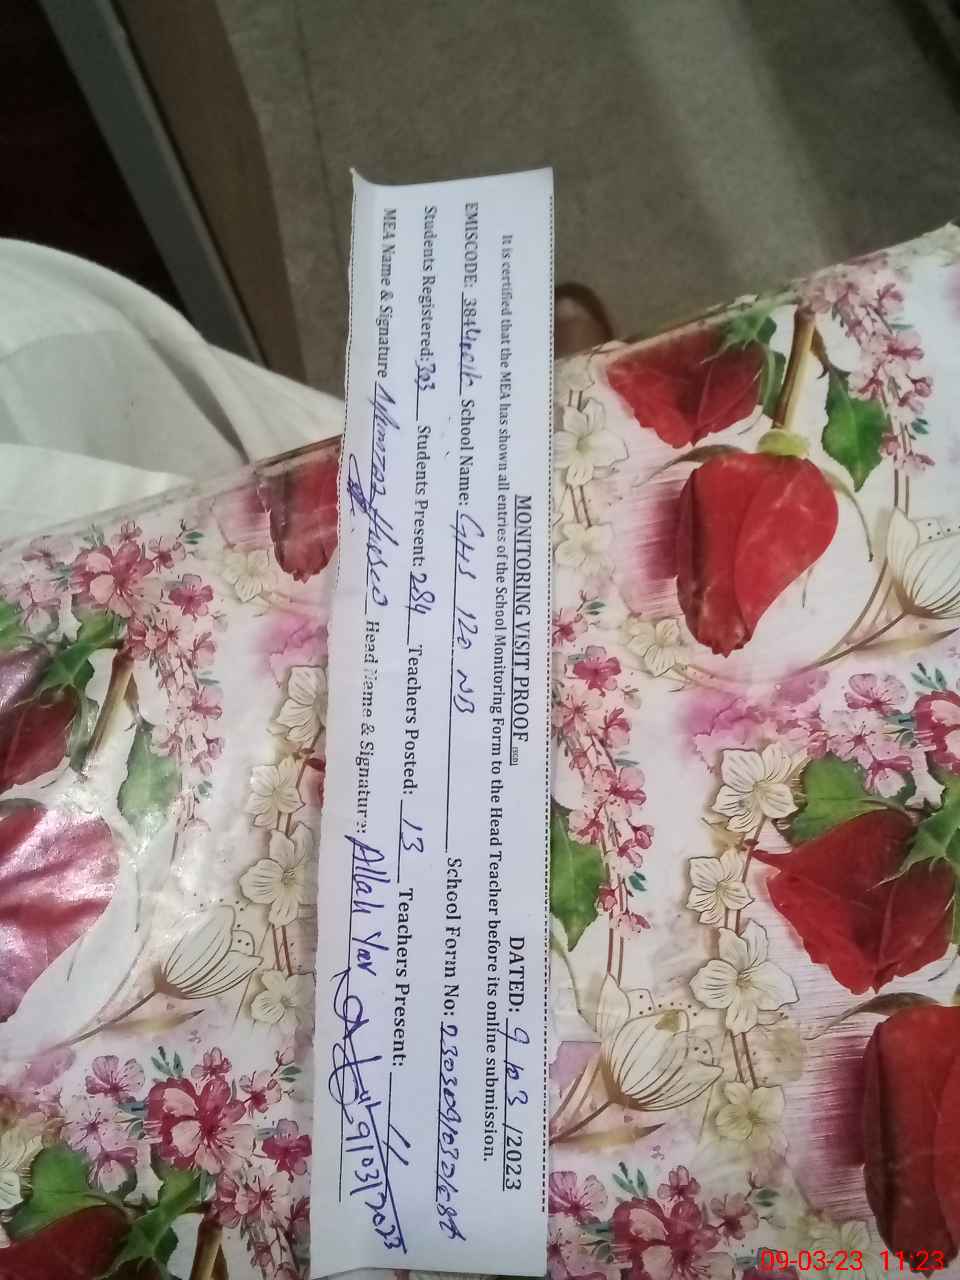 MONITORING VISIT PROOF (SGD) DATED: 9 /03 /2023
It is certified that the MEA has shown all entries of the School Monitoring Form to the Head Teacher before its online submission.
EMISCODE: School Name: GHS 120 NB School Form No:
Students Registered: 303 Students Present: 284 Teachers Posted: 13 Teachers Present: 11
MEA Name & Signature Head Name & Signature: Allah Yar 9/03/2023
09-03-23 11:23